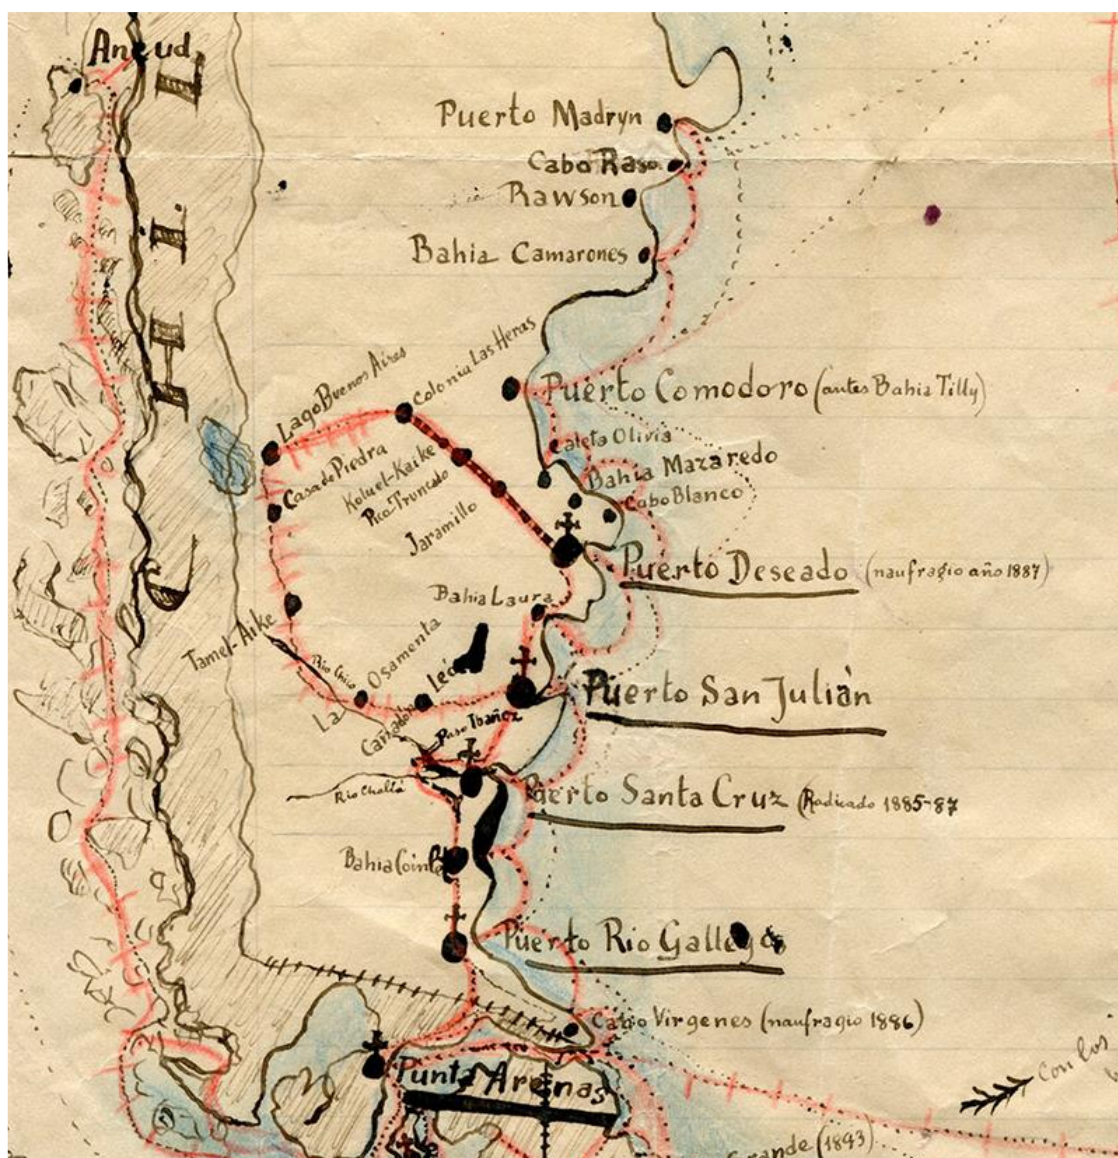 Ancud.
CHILE
Puerto Madryn
Cabo Raso
Rawson
Bahia Camarones
Colonia Las Heras
Lago Buenos Aires
Puerto Comodoro (antes Bahia Tilly)
Caleta Olivia
Bahia Mazaredo
Cabo Blanco
Casa de Piedra
Koluel-Kaike
Pico Truncado
Jaramillo
Puerto Deseado (naufragio año 1887)
Bahia Laura
Tamel-Aike
Rio Chico
La Osamenta
Cañadon León
Puerto San Julián
Paso Ibañez
Rio Chaltá
Puerto Santa Cruz (Radicado 1885-87
Bahia
Puerto Rio Gallegos
Cabo Virgenes (naufragio 1886)
Punta Arenas
Con los
Grande (1893)